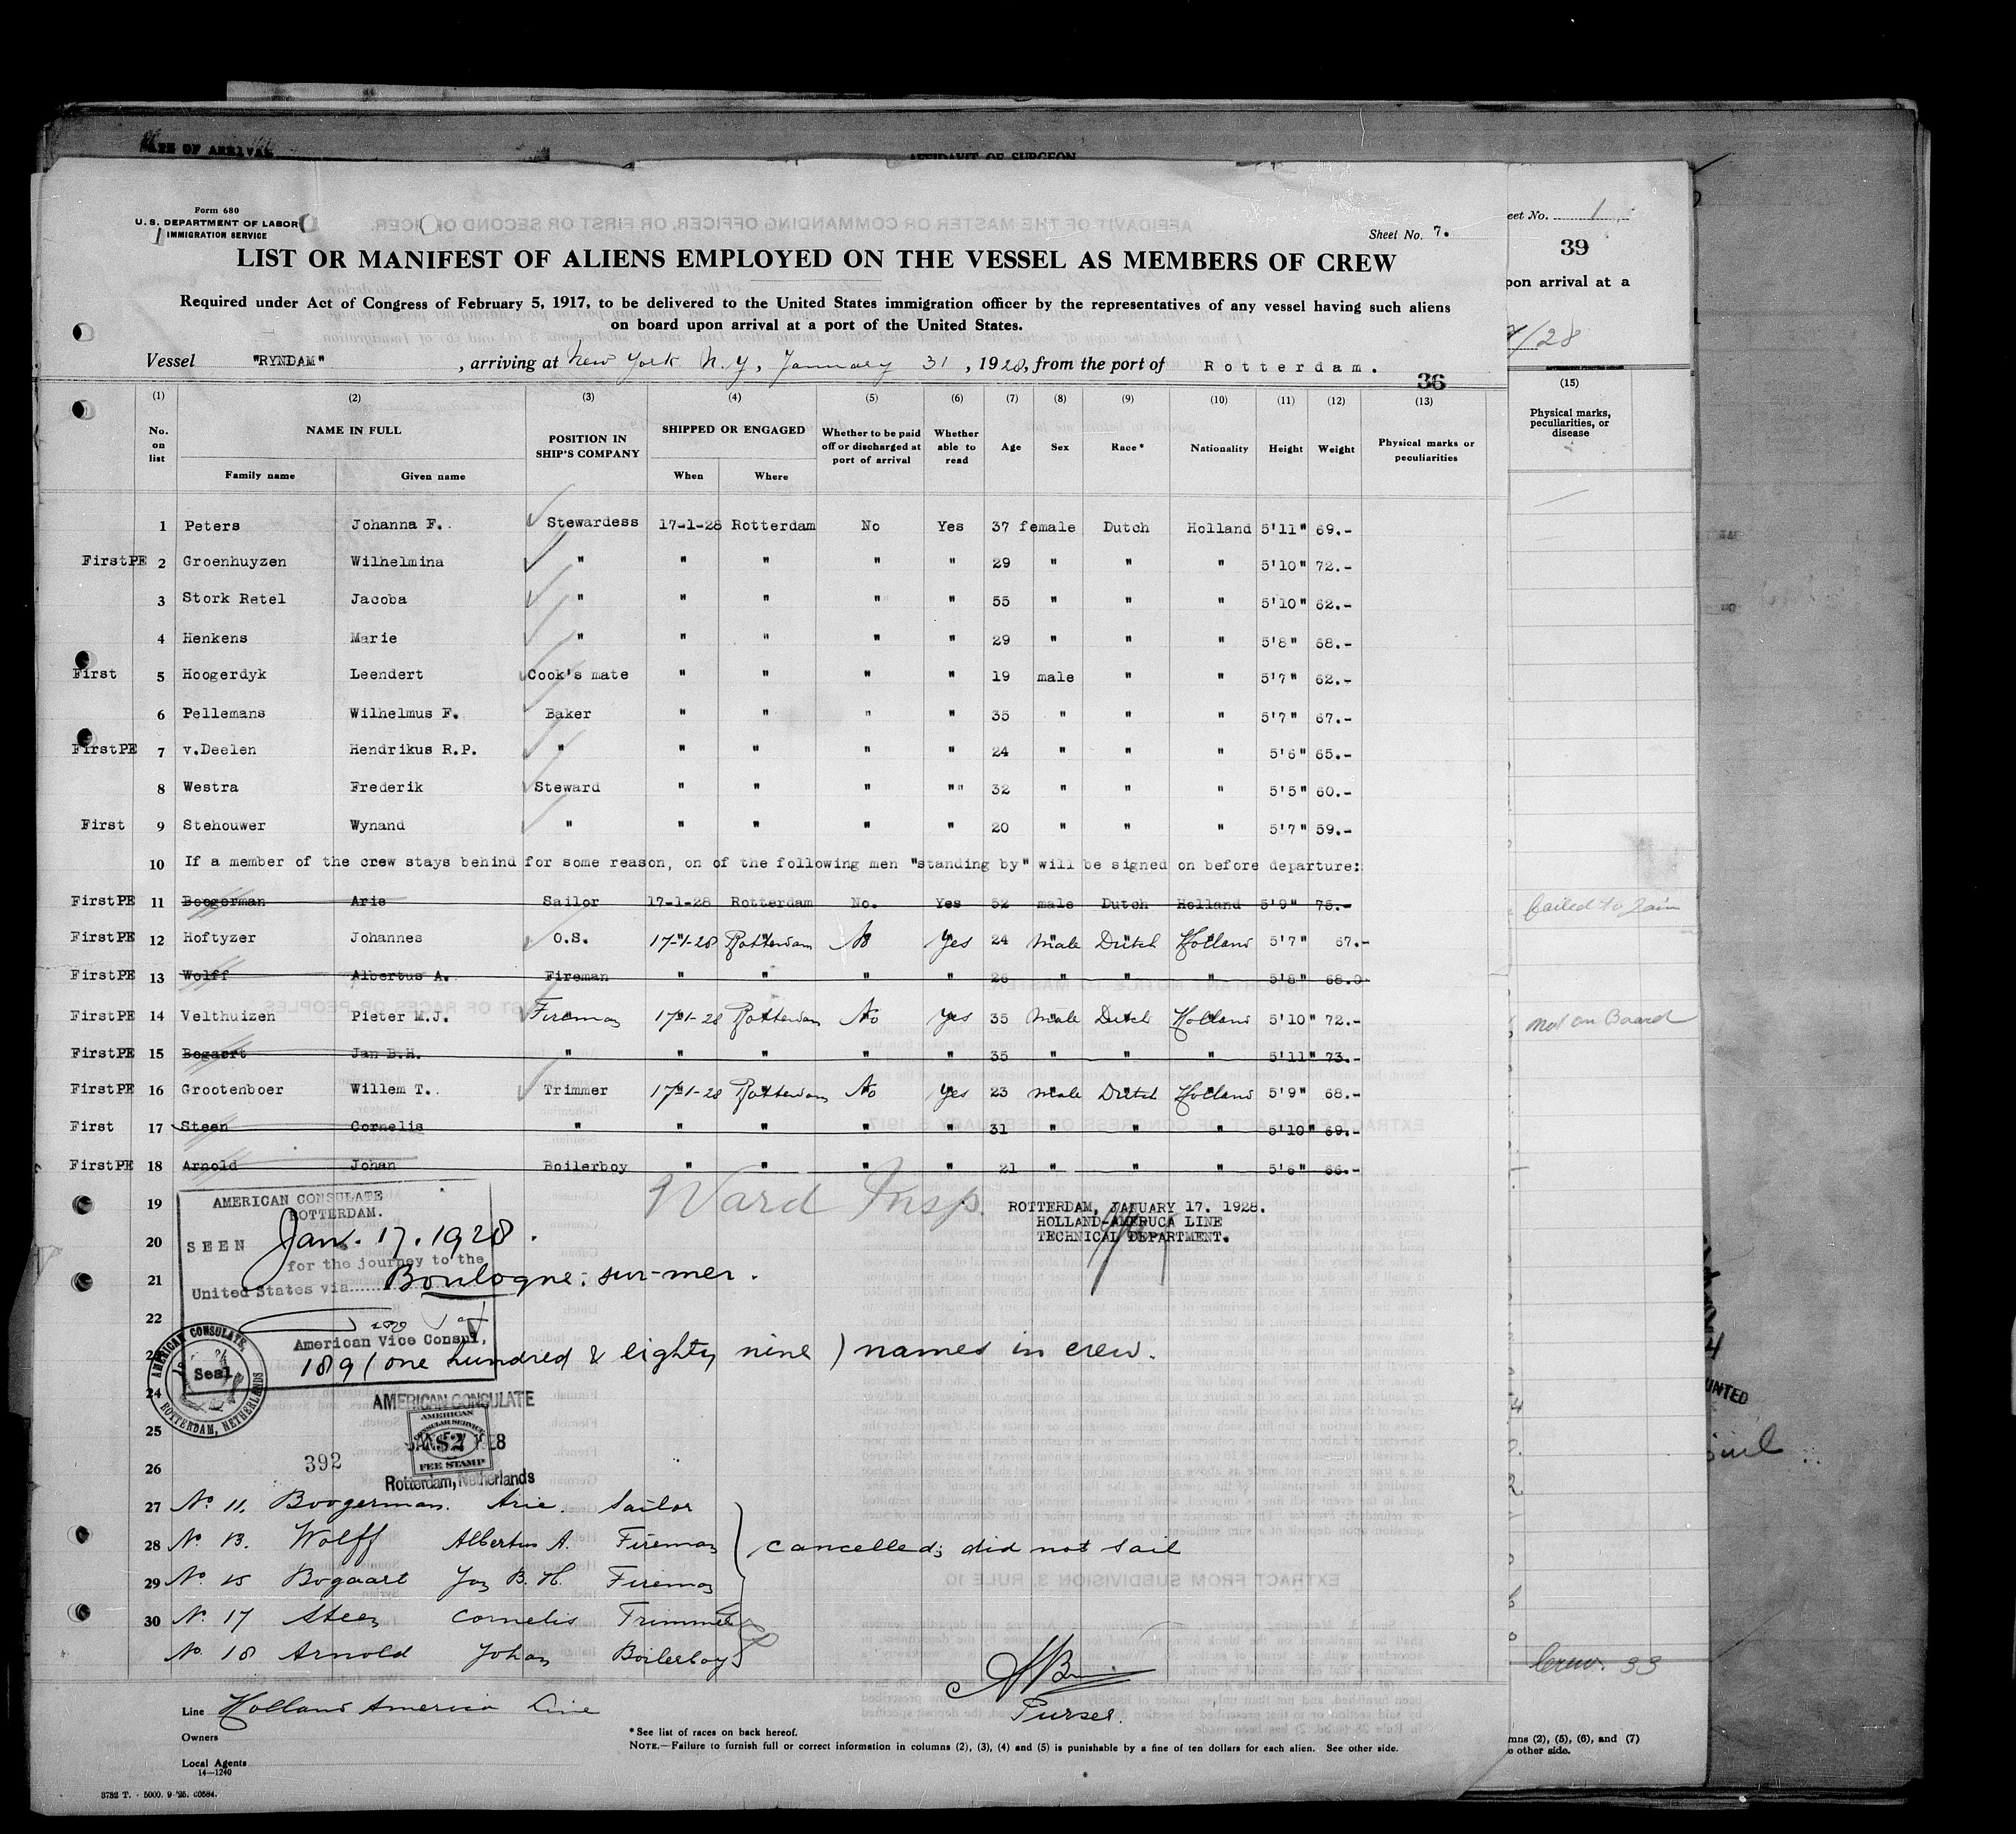 DATE OF ARRIVAL
AFFIDAVIT OF SURGEON
Form 680
U. S. DEPARTMENT OF LABOR
IMMIGRATION SERVICE
Sheet No. 7.
LIST OR MANIFEST OF ALIENS EMPLOYED ON THE VESSEL AS MEMBERS OF CREW
Required under Act of Congress of February 5, 1917, to be delivered to the United States immigration officer by the representatives of any vessel having such aliens
on board upon arrival at a port of the United States.
Vessel "RYNDAM" , arriving at New York N.Y, January 31 , 1928, from the port of Rotterdam.
36
(1) (2) (3) (4) (5) (6) (7) (8) (9) (10) (11) (12) (13)
No. on list NAME IN FULL Family name Given name POSITION IN SHIP'S COMPANY SHIPPED OR ENGAGED When Where Whether to be paid off or discharged at port of arrival Whether able to read Age Sex Race* Nationality Height Weight Physical marks or peculiarities
1 Peters Johanna F. Stewardess 17-1-28 Rotterdam No Yes 37 female Dutch Holland 5'11" 69.-
FirstPE 2 Groenhuyzen Wilhelmina " " " " " 29 " " " 5'10" 72.-
3 Stork Retel Jacoba " " " " " 55 " " " 5'10" 62.-
4 Henkens Marie " " " " " 29 " " " 5'8" 68.-
First 5 Hoogerdyk Leendert Cook's mate " " " " 19 male " " 5'7" 62.-
6 Pellemans Wilhelmus F. Baker " " " " 35 " " " 5'7" 67.-
FirstPE 7 v.Deelen Hendrikus R.P. " " " " " 24 " " " 5'6" 65.-
8 Westra Frederik Steward " " " "" 32 " " " 5'5" 60.-
First 9 Stehouwer Wynand " " " " " 20 " " " 5'7" 59.-
10 If a member of the crew stays behind for some reason, on of the following men "standing by" will be signed on before departure:
FirstPE 11 Boogerman Arie Sailor 17-1-28 Rotterdam No. Yes 52 male Dutch Holland 5'9" 75.-
FirstPE 12 Hoftyzer Johannes O.S. 17-1-28 Rotterdam No Yes 24 Male Dutch Holland 5'7" 67.-
FirstPE 13 Wolff Albertus A. Fireman " " " " 26 " " " 5'8" 68.0
FirstPE 14 Velthuizen Pieter M.J. Fireman 17-1-28 Rotterdam No Yes 35 Male Dutch Holland 5'10" 72.-
FirstPE 15 Bogaert Jan B.H. " " " " " 35 " " " 5'11" 73.-
FirstPE 16 Grootenboer Willem T. Trimmer 17-1-28 Rotterdam No Yes 23 Male Dutch Holland 5'9" 68.-
First 17 Steen Cornelis " " " " " 31 " " " 5'10" 69.-
FirstPE 18 Arnold Johan Boilerboy " " " " 21 " " " 5'6" 66.-
19 AMERICAN CONSULATE
ROTTERDAM.
Ward Insp.
ROTTERDAM, JANUARY 17. 1928.
HOLLAND-AMERUCA LINE
TECHNICAL DEPARTMENT.
20 SEEN Jan. 17. 1928.
for the journey to the
21 United States via Boulogne-sur-mer.
22
American Vice Consul,
23 189 (one hundred & eighty nine) names in crew.
AMERICAN CONSULATE, ROTTERDAM, NETHERLANDS
Seal
24
AMERICAN CONSULATE
AMERICAN CONSULAR SERVICE
$2
FEE STAMP
Rotterdam, Netherlands
25
392
26
27 No 11. Boogerman. Arie. Sailor
28 No 13. Wolff Albertus A. Fireman
cancelled; did not sail
29 No 15 Bogaart Jan B. H. Fireman
30 No 17 Steen Cornelis Trimmer
No. 18 Arnold Johan Boilerboy
Purser.
Line Holland America Line
Owners
Local Agents
14—1240
*See list of races on back hereof.
NOTE.—Failure to furnish full or correct information in columns (2), (3), (4) and (5) is punishable by a fine of ten dollars for each alien. See other side.
3732 T. - 5000. 9-'25.
eet No. 1
39
pon arrival at a
/28
(15)
Physical marks, peculiarities, or disease
failed to join
not on Board
Crew. 33
mns (2), (5), (6), and (7)
e other side.
UNTED